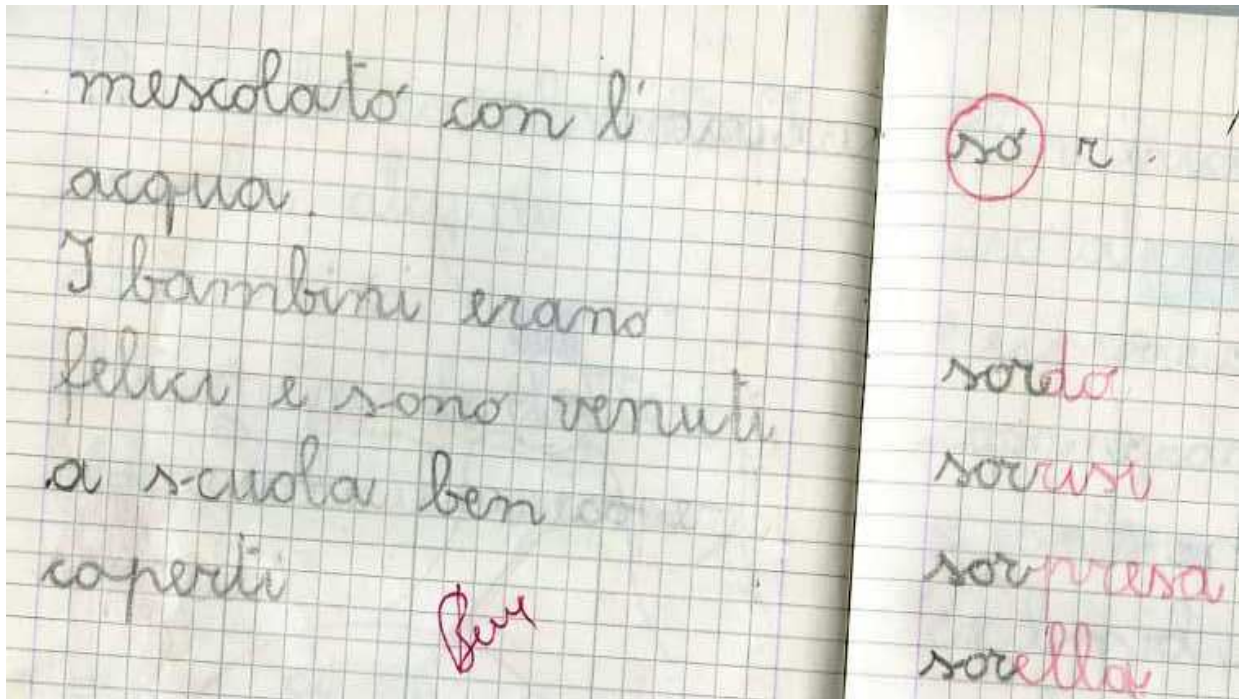 mescolato con l'
acqua.
I bambini erano
felici e sono venuti
a scuola ben
coperti
Bene
so r
sordo
sorrisi
sorpresa
sorella